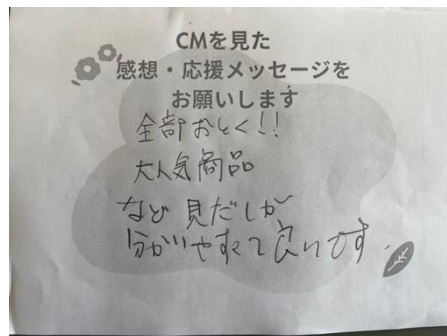 CMを見た
感想・応援メッセージを
お願いします
全部おとく!!
大人気商品
など見だしが
分かりやすくて良いです。